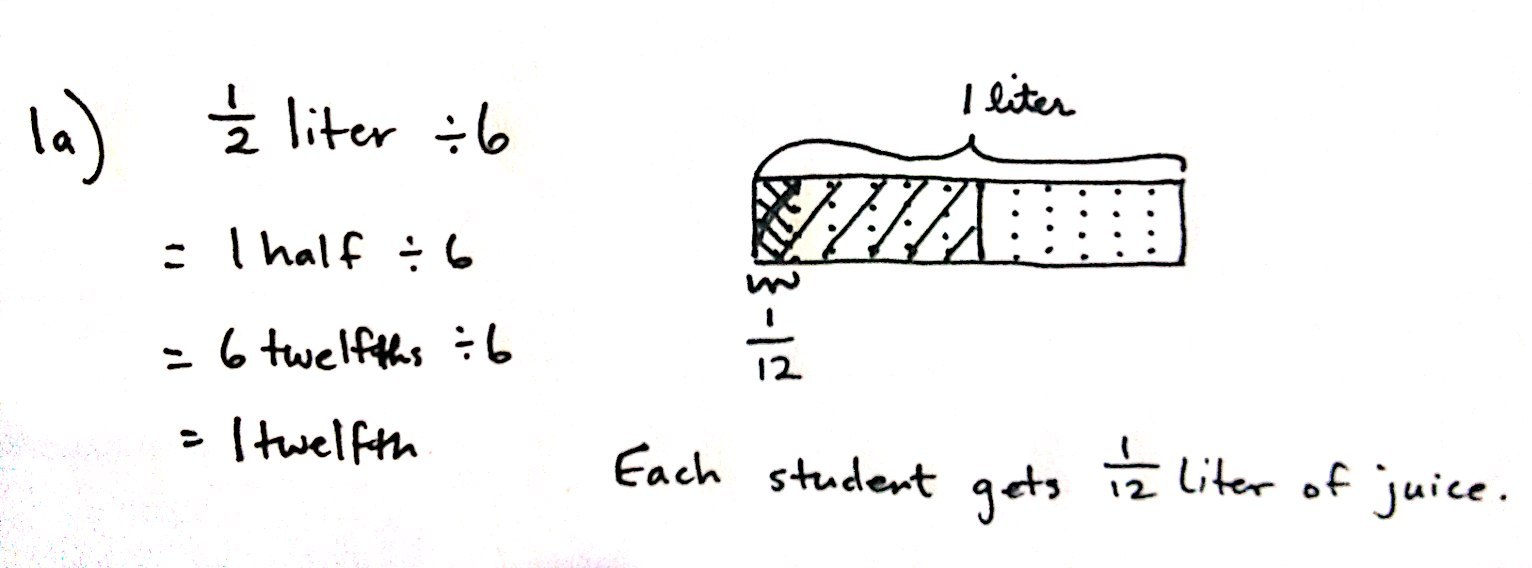 1a) 1/2 liter ÷ 6
= 1 half ÷ 6
= 6 twelfths ÷ 6
= 1 twelfth
1 liter
1/12
Each student gets 1/12 liter of juice.